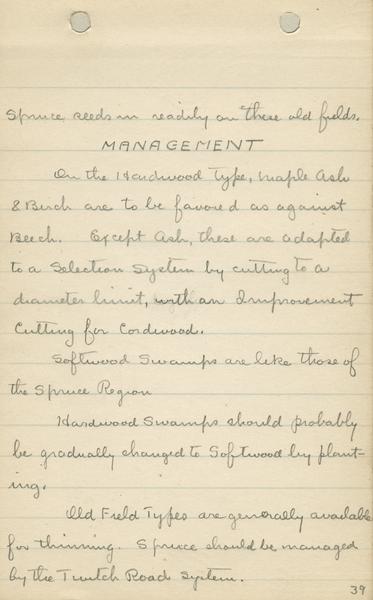 Spruce seeds in readily on these old fields.
MANAGEMENT
On the Hardwood Type, Maple Ash
& Birch are to be favored as against
Beech. Except Ash, these are adapted
to a Selection System by cutting to a
diameter limit, with an Improvement
Cutting for Cordwood.
Softwood Swamps are like those of
the Spruce Region
Hardwood Swamps should probably
be gradually changed to Softwood by plant-
ing.
Old Field Types are generally available
for thinning. Spruce should be managed
by the Twitch Road System.
39